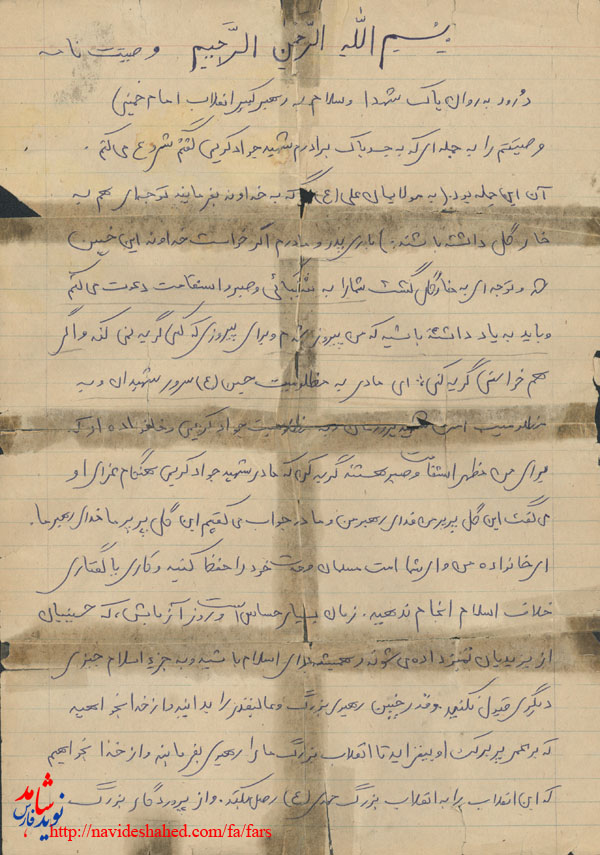 بِسْمِ اللّٰهِ الرَّحْمنِ الرَّحیمِ وصیت نامه
درود به روان پاک شهدا و سلام به رهبر کبیر انقلاب امام خمینی
وصیتم را به جمله ای که به جسد پاک برادرم شهید جواد کریمی گفتم شروع می کنم.
آن این جمله بود: (به مولایمان علی (ع) بگو که به خداوند بفرمایند توجهای هم به
خار گل داشته باشند.) باری پدر و مادرم اگر خواست خداوند این چنین
شد و توجه ای به خار گل گشت شما را به شکیبائی و صبر و استقامت دعوت می کنم
و باید به یاد داشته باشید که من پیروز شدم و برای پیروزی که کسی گریه نمی کند و اگر
هم خواستی گریه کنی: ای مادر به مظلومیت حسین (ع) سرور شهیدان و به
مظلومیت امت جواد کریمی و خانواده او که
برای من مظهر استقامت و صبر هستند گریه کن که مادر شهید جواد کریمی هنگام عزای او
می گفت این گل پرپر من فدای رهبر من و ما در جواب می گفتیم این گل پرپر ما فدای رهبر ما.
ای خانواده من و ای شما امت مسلمان وحدت خود را حفظ کنید و کاری یا گفتاری
خلاف اسلام انجام ندهید. زمان بسیار حساس است و روز آزمایش، که حسینیان
از یزیدیان تمیز داده می شوند و همیشه برای اسلام باشید و به جزء اسلام چیزی
دیگری قبول نکنید. و قدر چنین رهبری بزرگ و عالیقدر را بدانید و از خدا بخواهید
که بر عمر پر برکت او بیفزاید تا انقلاب بزرگ ما را رهبری بفرمایند و از خدا بخواهیم
که این انقلاب را به انقلاب بزرگ مهدی (ع) وصل بکند. و از پروردگار بزرگ
نوید شاهد فارس
http://navideshahed.com/fa/fars